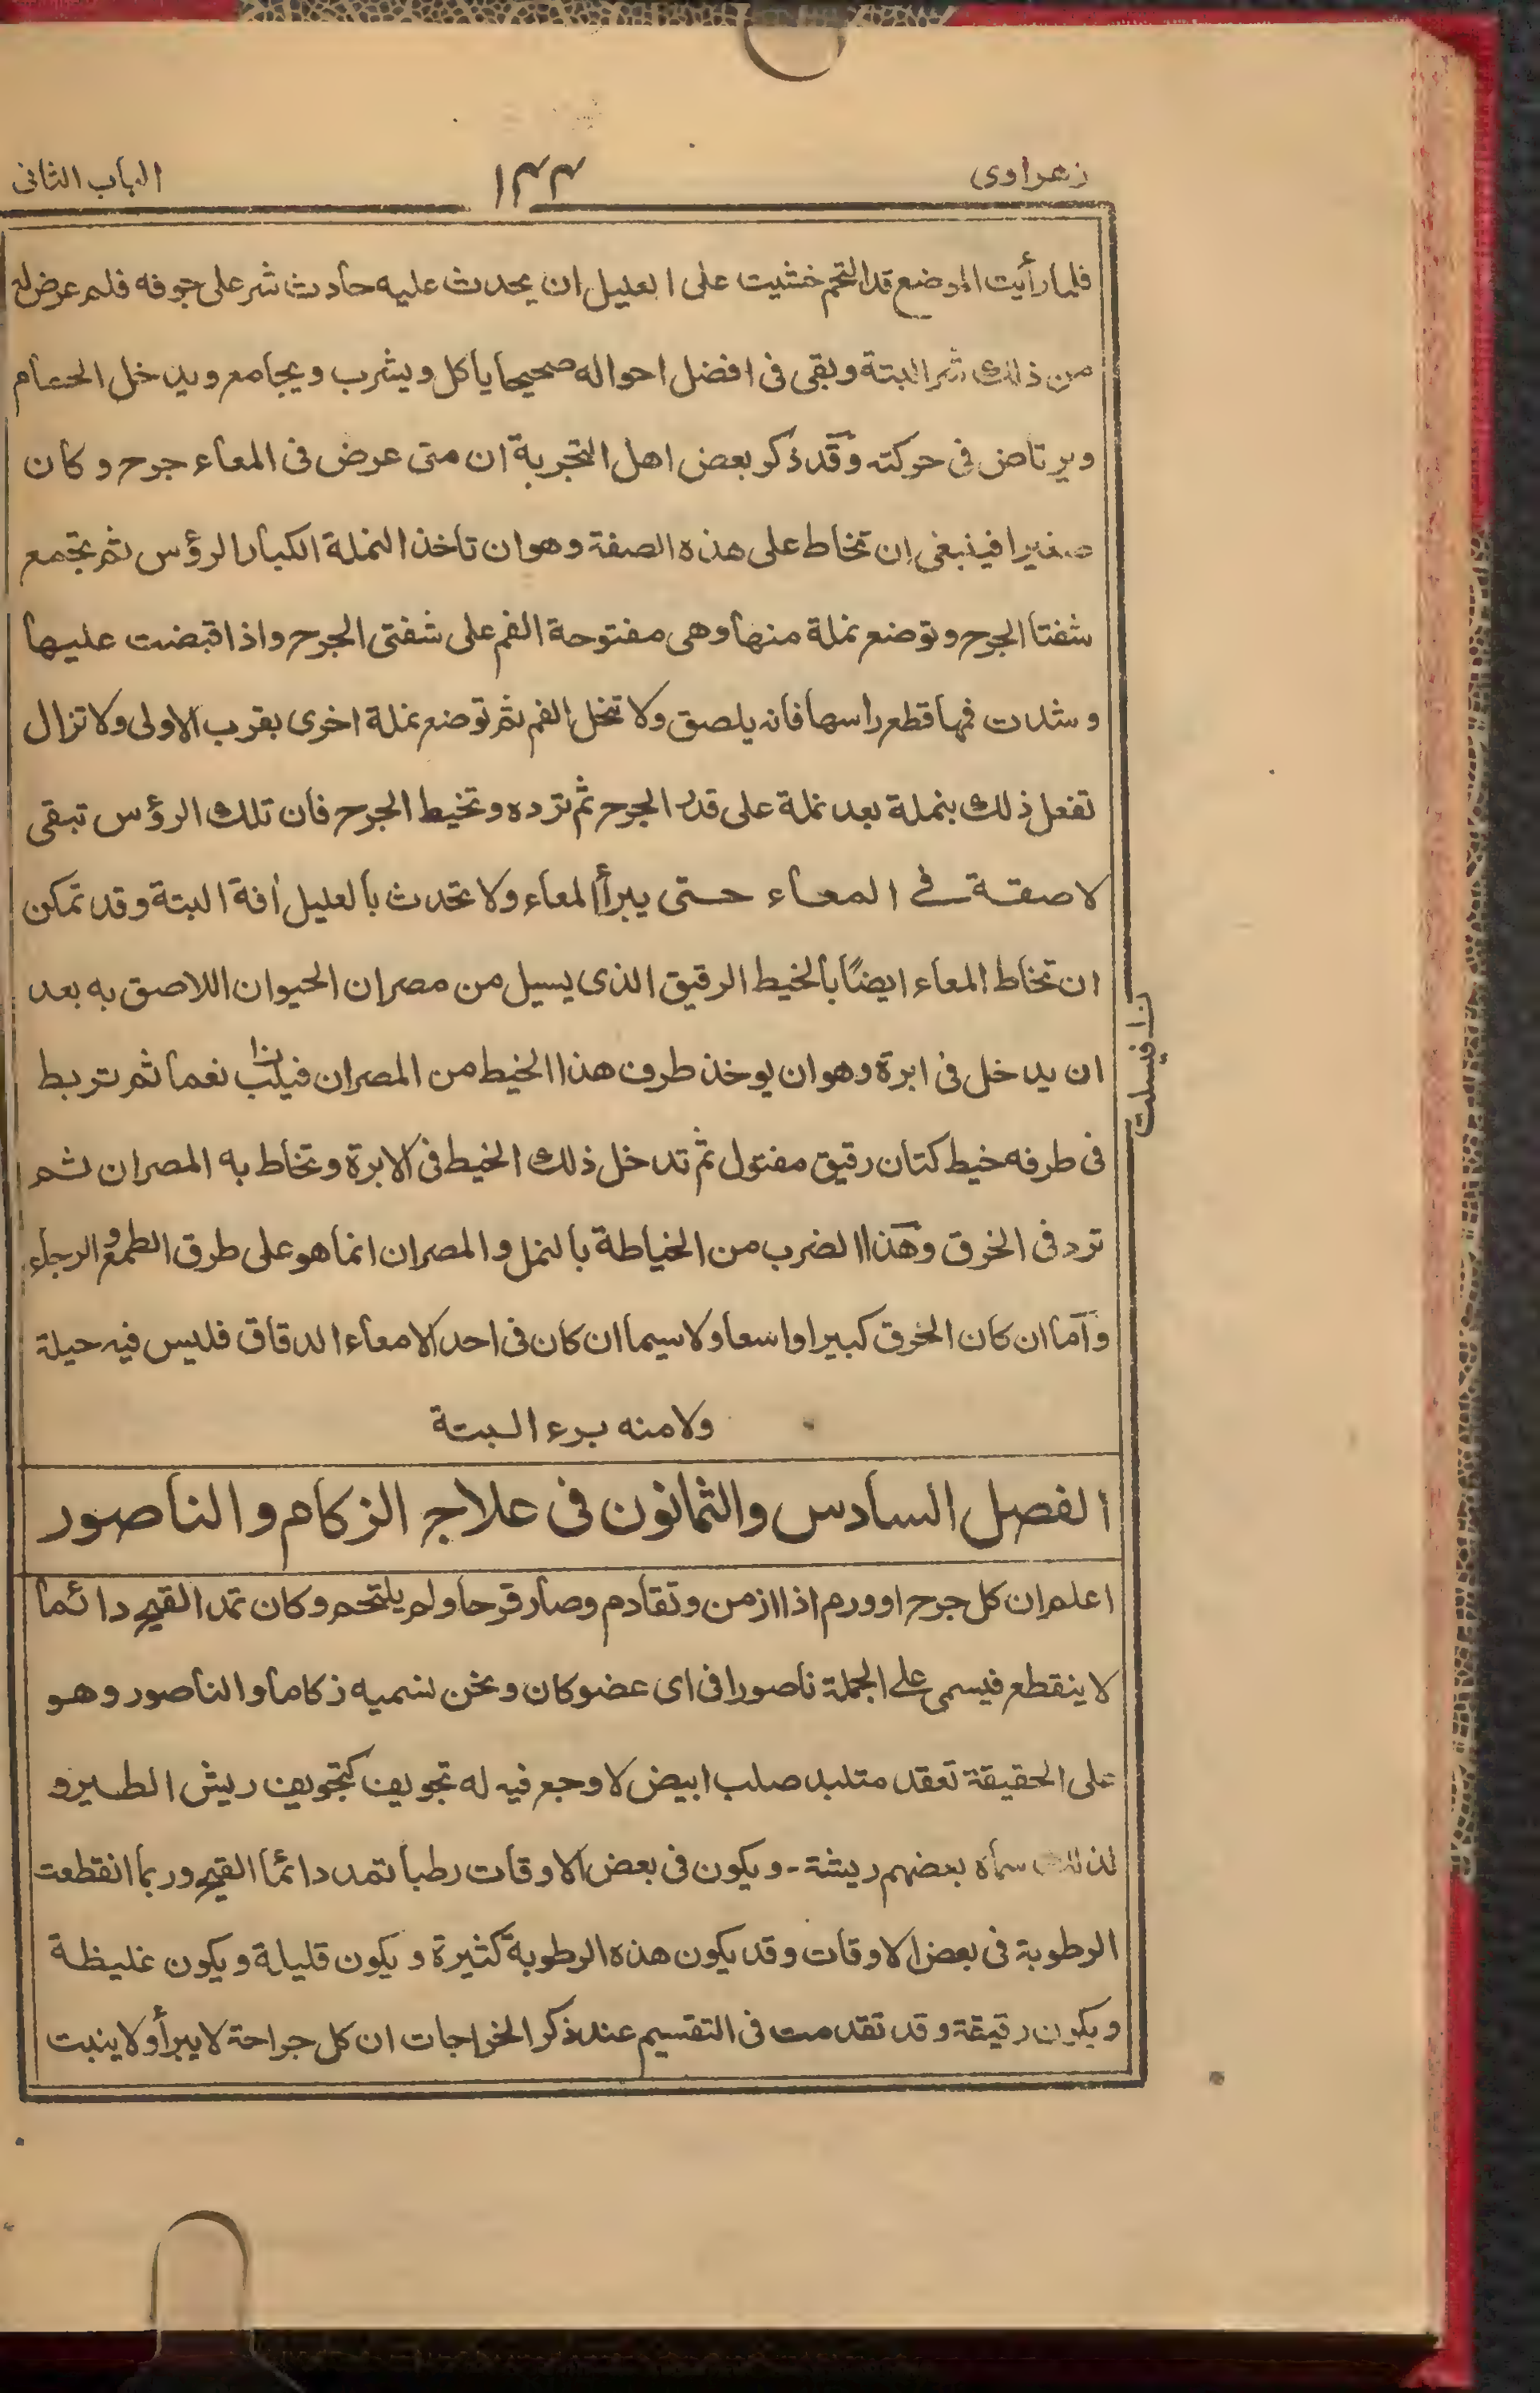 زهراوى ١٣٣ الباب الثانى
فلما رأيت الموضع قد التحم خشيت على العليل ان يحدث عليه حادث شر على جوفه فلم عرض له
من ذلك شر البتة وبقى فى افضل احواله صحيحا ياكل ويشرب ويجامع ويدخل الحمام
ويرتاض فى حركته وقد ذكر بعض اهل التجربة ان متى عرض فى المعاء جرح وكان
صغيرا فينبغى ان تخاط على هذه الصفة وهو ان تاخذ النملة الكبار الرؤس ثم تجمع
شفتا الجرح وتوضع نملة منها وهى مفتوحة الفم على شفتى الجرح واذا قبضت عليها
وشدت فمها قطع راسها فانه يلصق ولا تنحل الفم ثم توضع نملة اخرى بقرب الاولى ولا تزال
تفعل ذلك بنملة بعد نملة على قدر الجرح ثم ترده وتخيط الجرح فان تلك الرؤس تبقى
لاصقة فى المعاء حتى يبرأ المعاء ولا تحدث بالعليل أفة البتة وقد تمكن
ان تخاط المعاء ايضًا بالخيط الرقيق الذى يسيل من مصران الحيوان اللاصق به بعد
ان يدخل فى ابرة وهو ان يوخذ طرف هذا الخيط من المصران نعما ثم تربط
ن افيسلت
فى طرفه خيط كتان رقيق مفتول ثم تدخل ذلك الخيط فى الابرة وتخاط به المصران ثم
ترد فى الخرق وهذا الضرب من الخياطة بالنمل والمصران انما هو على طرق الطمع والرجاء
واما ان كان الخرق كبيرا واسعا ولا سيما ان كان فى احد الامعاء الدقاق فليس فيه حيلة
ولا منه برء البتة
الفصل السادس والثمانون فى علاج الزكام والناصور
اعلم ان كل جرح او ورم اذا ازمن وتقادم وصار قرحا ولم يلتحم وكان تمد القيح دائما
لا ينقطع فيسمى على الجملة ناصورا فى اى عضو كان ونحن نسميه زكاما والناصور وهو
على الحقيقة تعقد متلبد صلب ابيض لا وجع فيه له تجويف كتجويف ريش الطير و
لذلك سماه بعضهم ريشة - ويكون فى بعض الاوقات رطبا تمد دائما القيح وربما انقطعت
الرطوبة فى بعض الاوقات وقد يكون هذه الرطوبة كثيرة ويكون قليلة ويكون غليظة
ويكون رقيقة وقد تقدمت فى التقسيم عند ذكر الخراجات ان كل جراحة لا يبرأ ولا ينبت